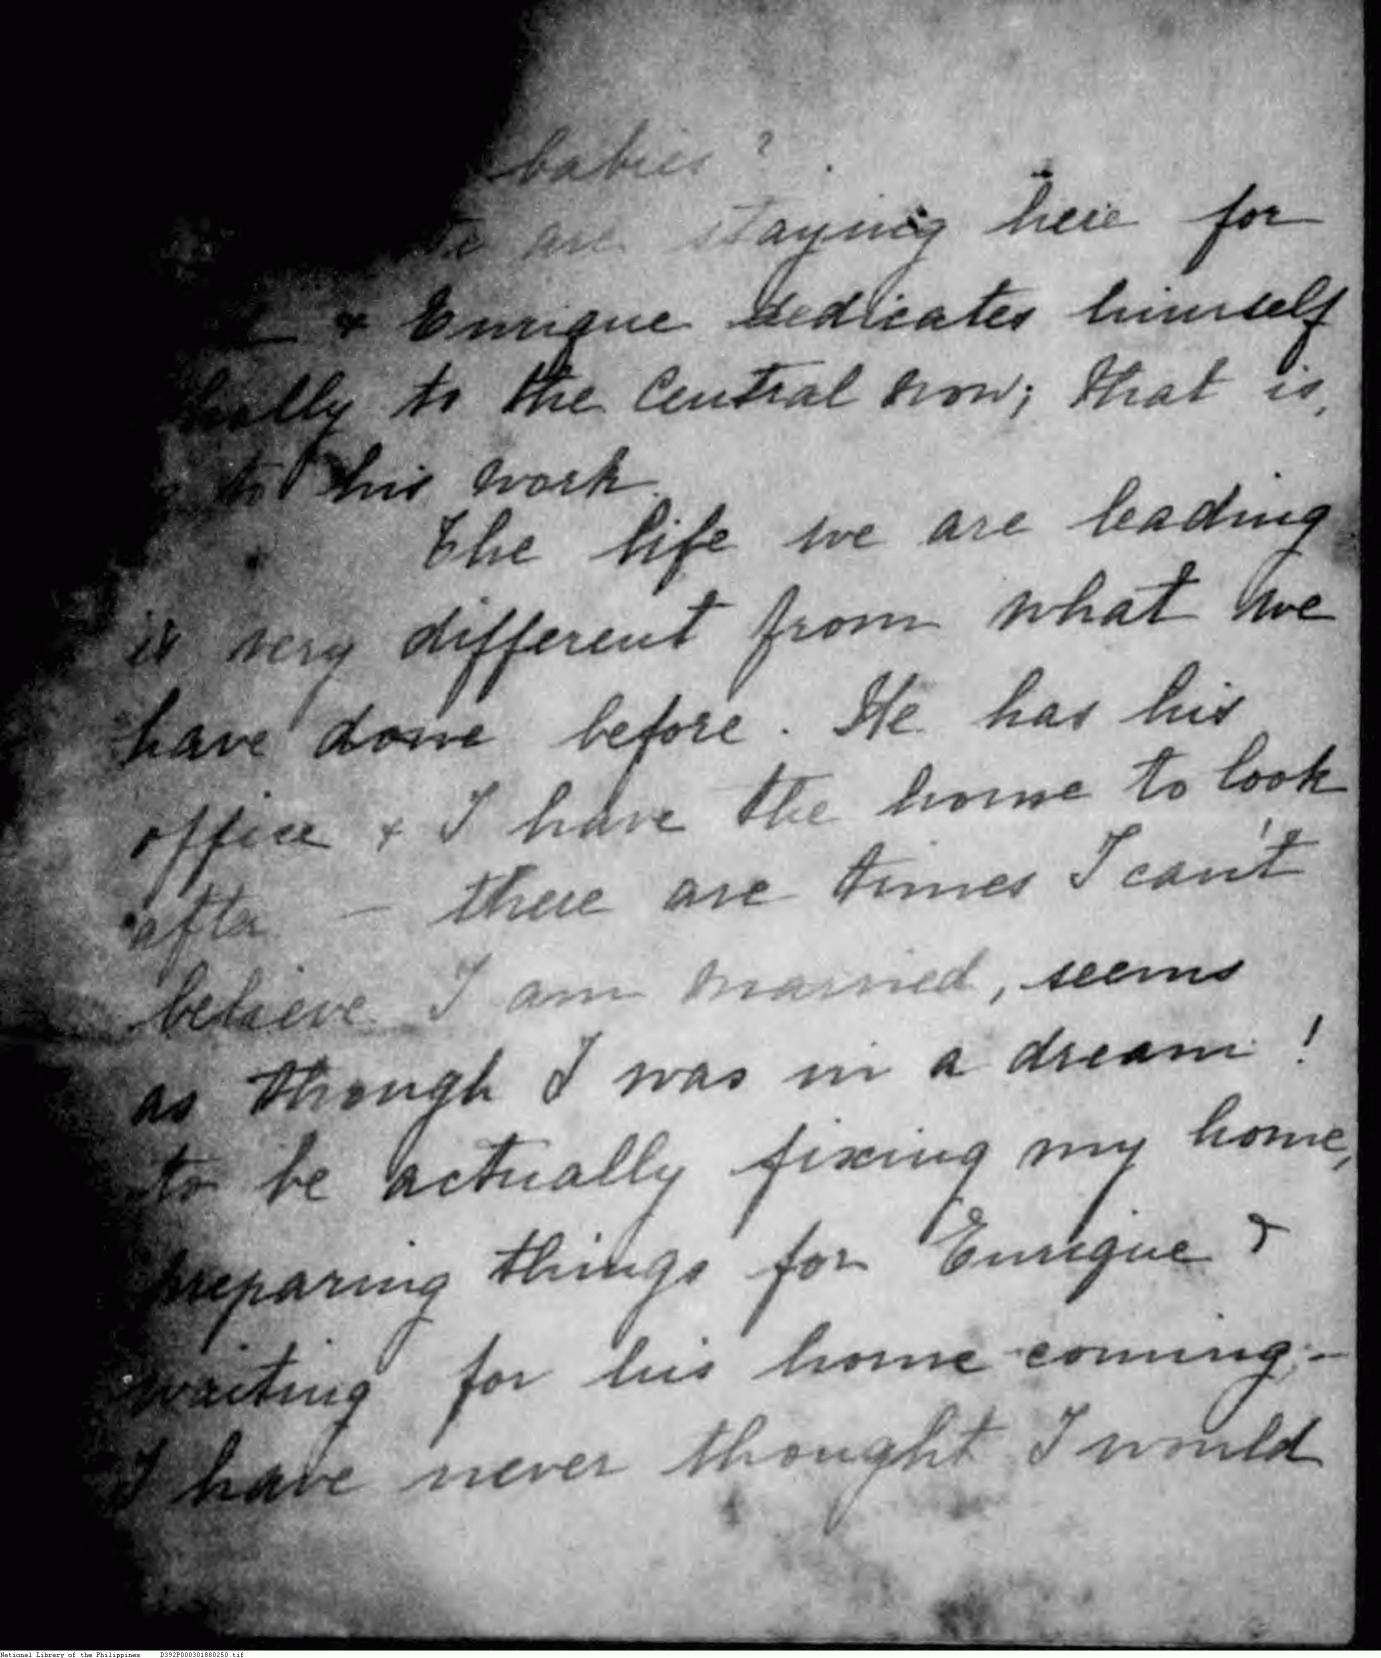 babies?
are staying here for
& Enrique dedicates himself
to the Central now; that is,
to his work.
The life we are leading
is very different from what we
have done before. He has his
office & I have the home to look
after — there are times I can't
believe I am married, seems
as though I was in a dream!
to be actually fixing my home,
preparing things for Enrique &
waiting for his home-coming;-
I have never thought I would
National Library of the Philippines D392P000301880250.tif